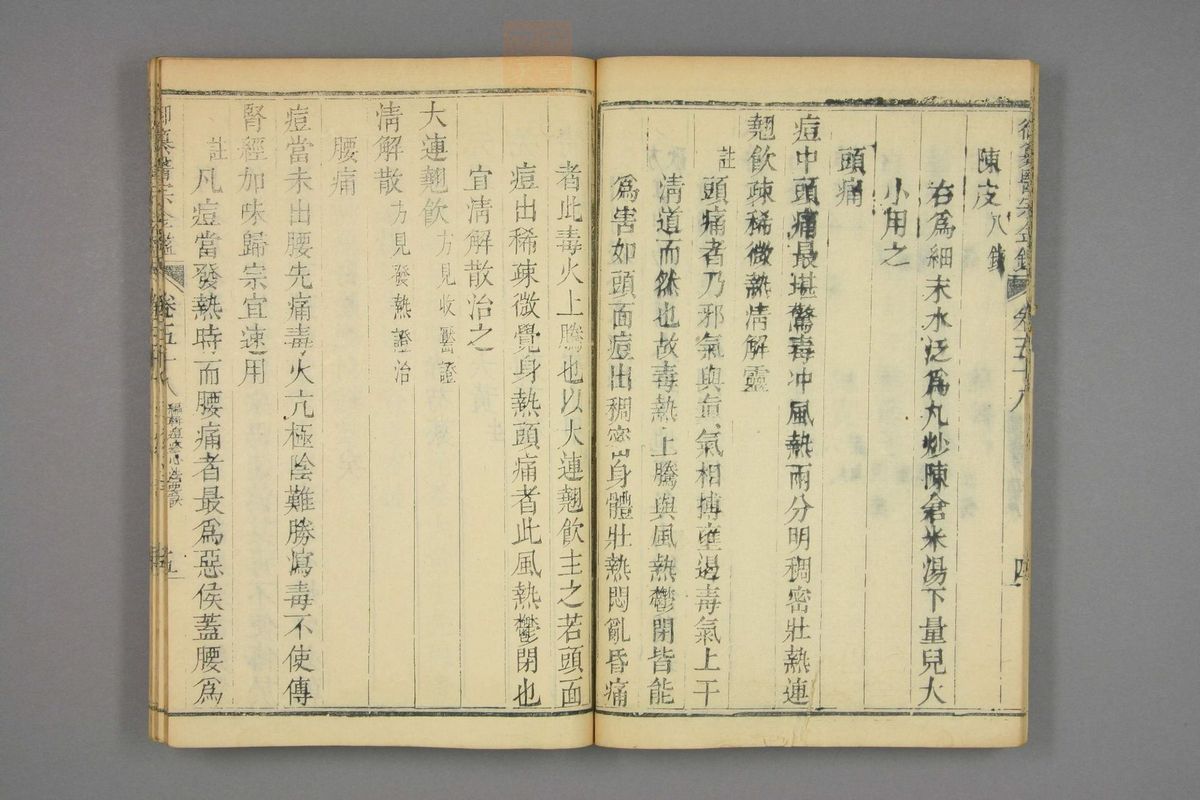 御纂醫宗金鑑 卷五十八 四
陳皮八錢
右為細末水泛為丸炒陳倉米湯下量兒大
小用之
頭痛
痘中頭痛最堪驚毒冲風熱兩分明稠密壯熱連
翹飲疎稀微熱清解靈
註頭痛者乃邪氣與真氣相搏壅遏毒氣上干
清道而然也故毒熱上騰與風熱鬱閉皆能
為害如頭面痘出稠密身體壯熱悶亂昏痛
者此毒火上騰也以大連翹飲主之若頭面
痘出稀疎微覺身熱頭痛者此風熱鬱閉也
宜清解散治之
大連翹飲方見收靨證
清解散方見發熱證治
腰痛
痘當未出腰先痛毒火亢極陰難勝瀉毒不使傳
腎經加味歸宗宜速用
註凡痘當發熱時而腰痛者最為惡侯蓋腰為
御纂醫宗金鑑 卷五十八 五